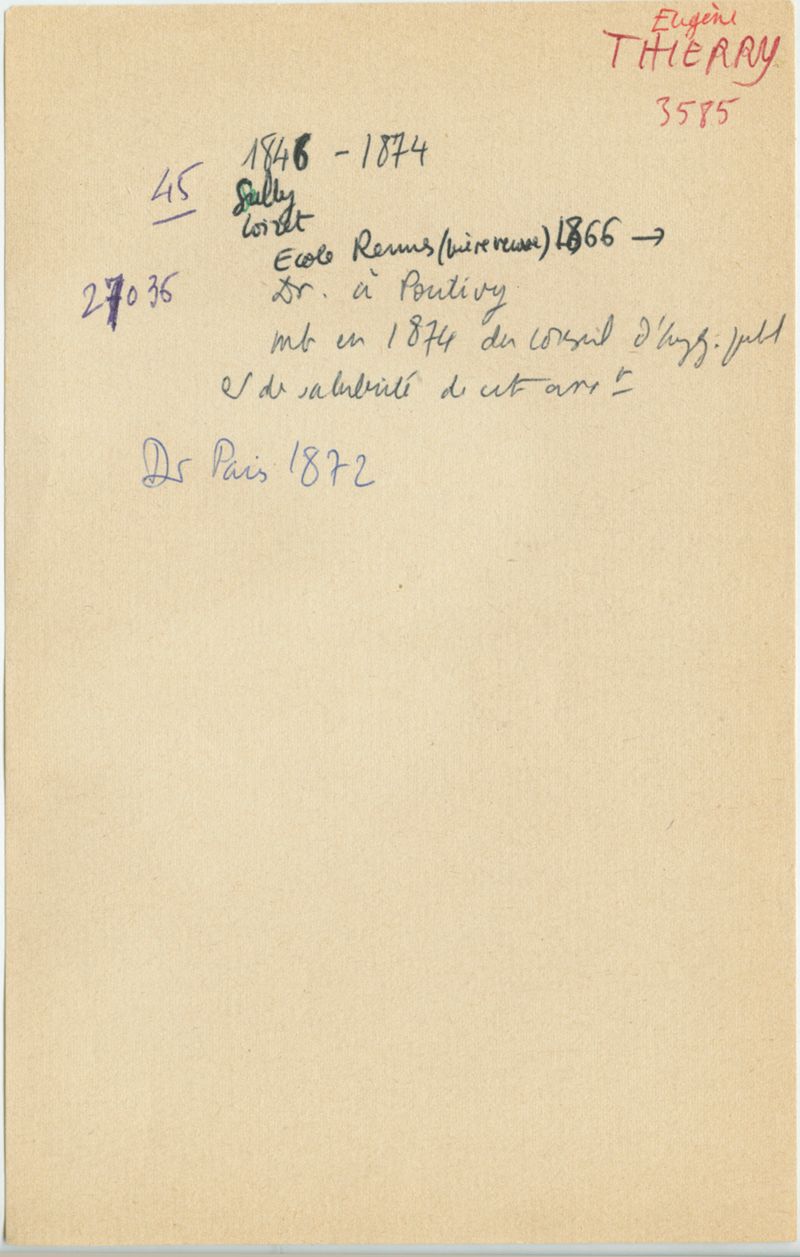 Eugène
THIERRY
3585
1846 - 1874
45
Sully
Loiret
Ecole Rennes (mère veuve) 1866 →
27036
Dr. à Pontivy
mb en 1874 du conseil d'hyg. publ
et de salubrité de cet arrt
Dr Paris 1872